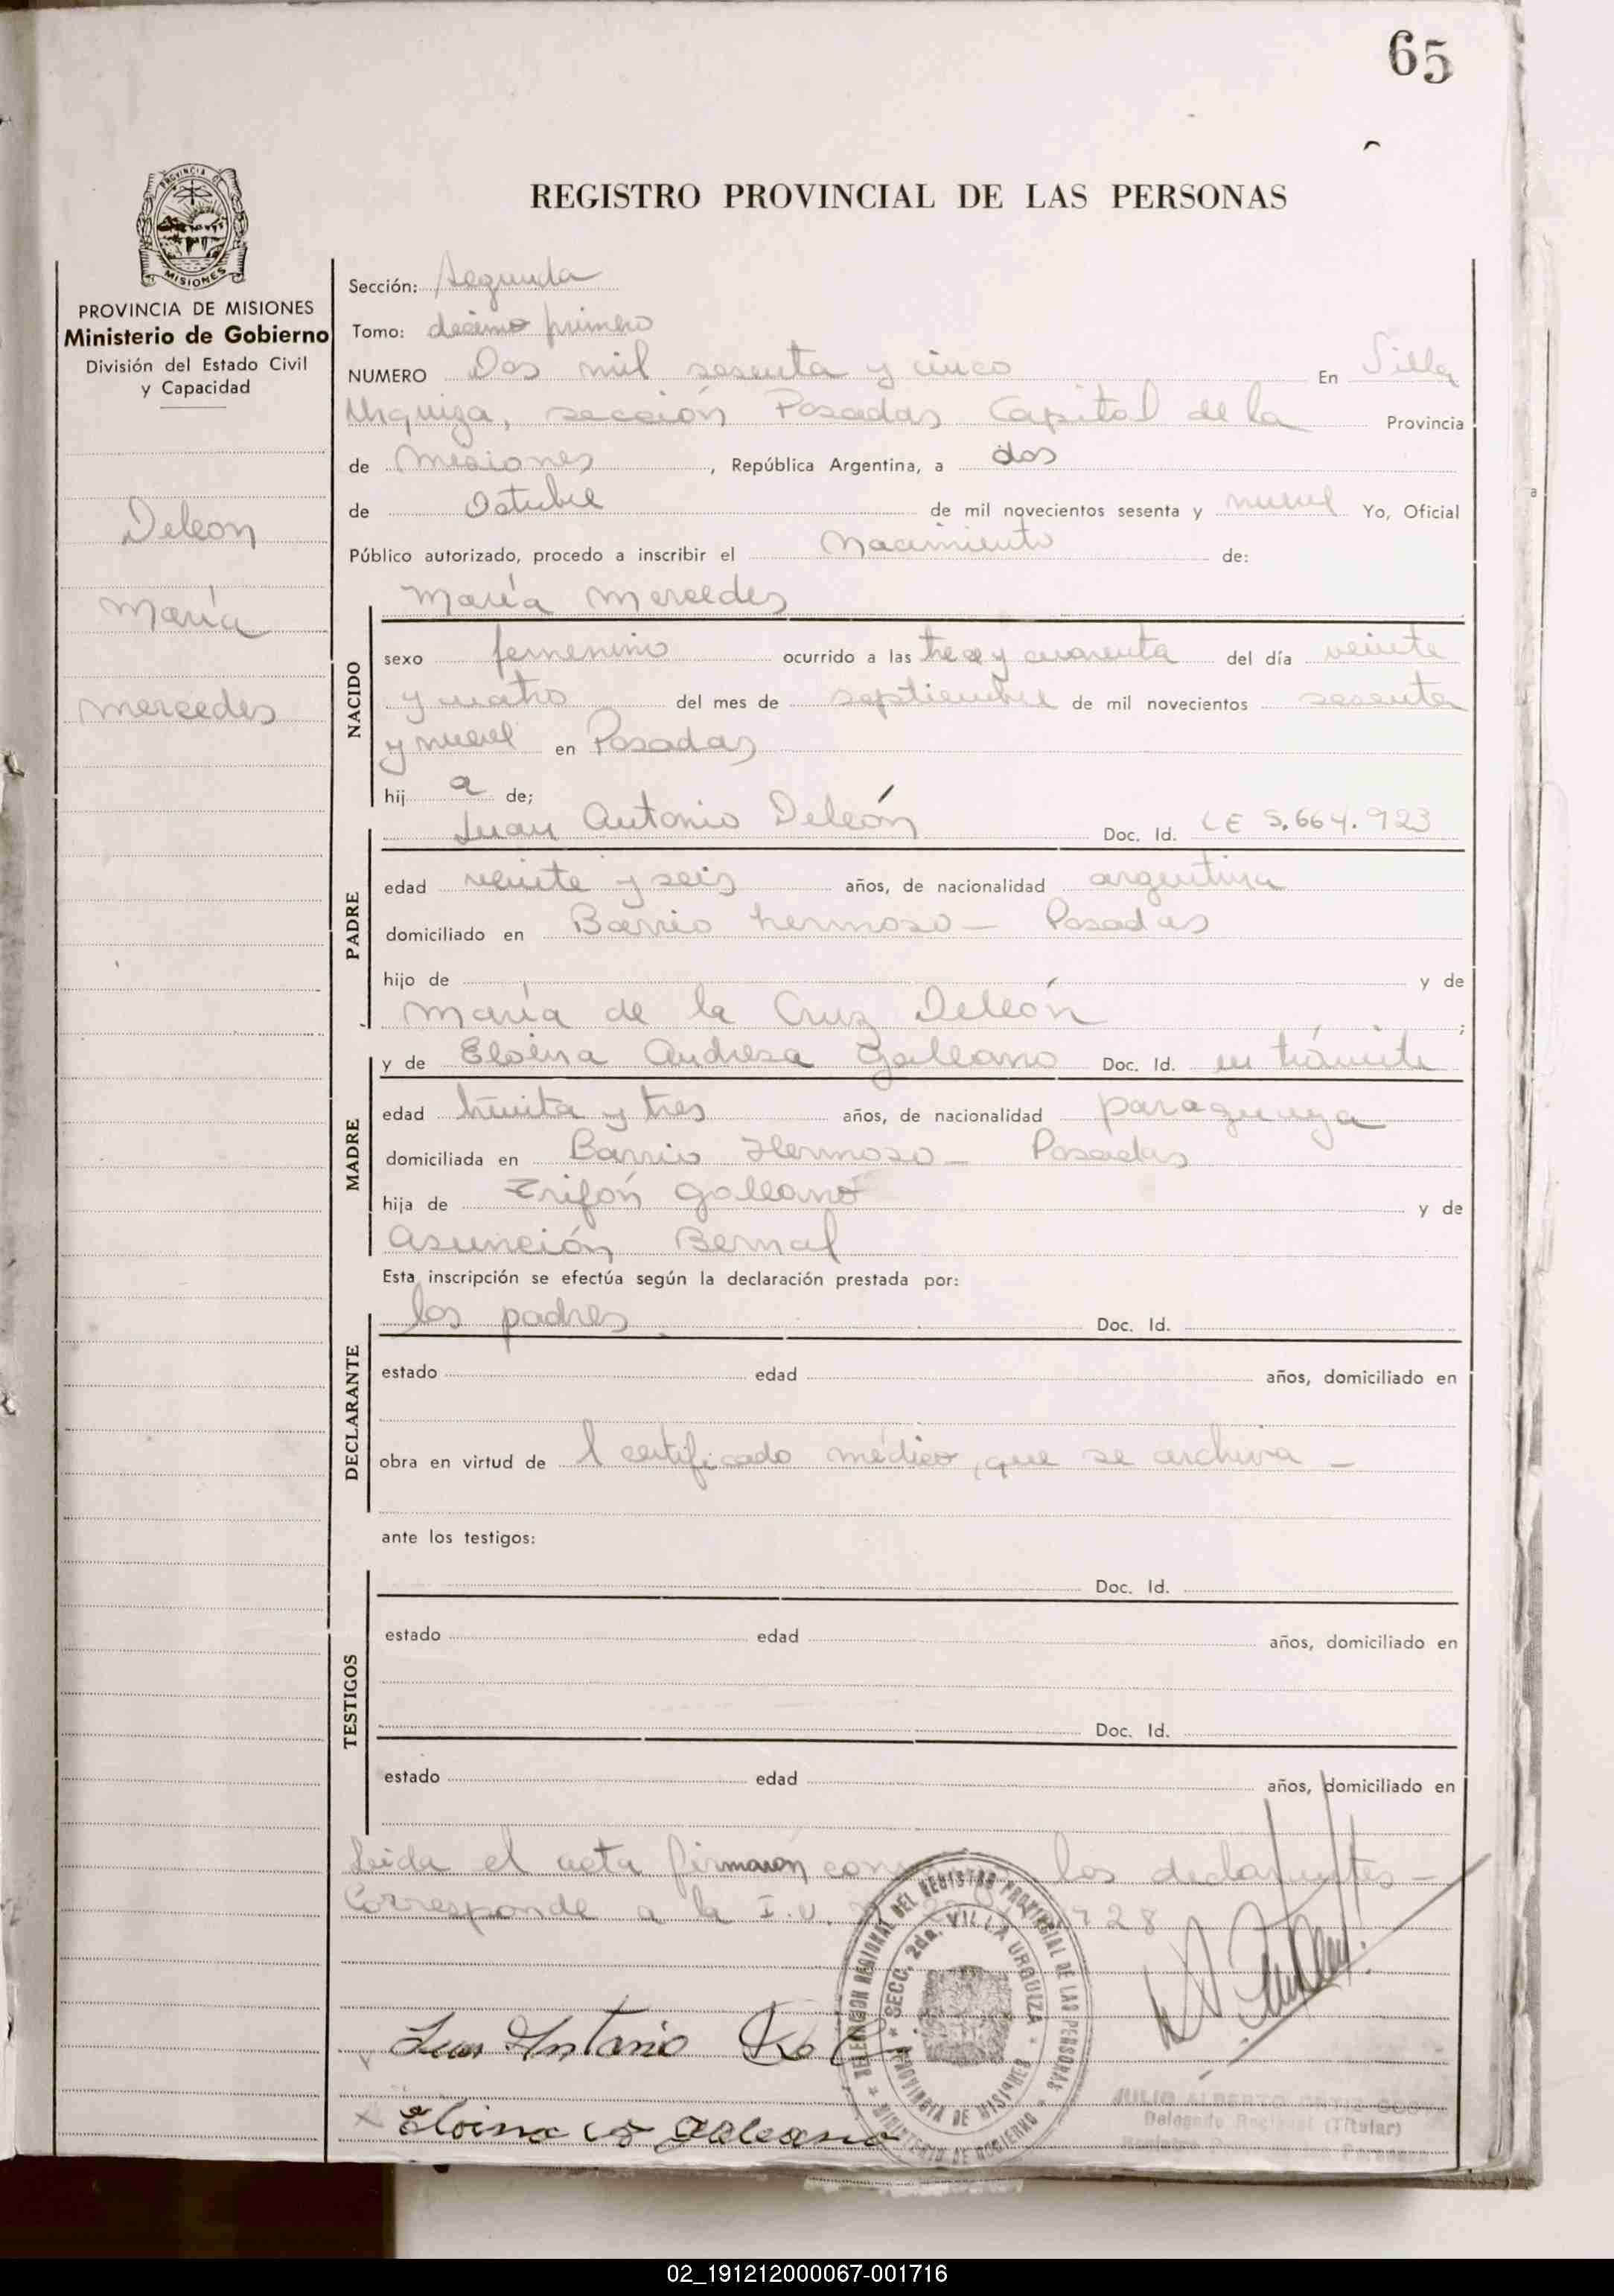 65
REGISTRO PROVINCIAL DE LAS PERSONAS
PROVINCIA DE MISIONES
Ministerio de Gobierno
División del Estado Civil
y Capacidad
Deleon
María
Mercedes
Sección: Segunda
Tomo: decimo primero
NUMERO Dos mil sesenta y cinco En Villa
Urquiza, sección Posadas Capital de la Provincia
de Misiones, República Argentina, a dos
de Octubre de mil novecientos sesenta y nueve Yo, Oficial
Público autorizado, procedo a inscribir el Nacimiento de:
María Mercedes
NACIDO
sexo femenino ocurrido a las tres y cuarenta del día veinte
y cuatro del mes de septiembre de mil novecientos sesenta
y nueve en Posadas
hij a de;
Juan Antonio Deleón Doc. Id. LE 5.664.923
PADRE
edad veinte y seis años, de nacionalidad argentina
domiciliado en Barrio hermoso - Posadas
hijo de y de
María de la Cruz Deleón ;
y de Eloina Andresa Galeano Doc. Id. en trámite
MADRE
edad treinta y tres años, de nacionalidad paraguaya
domiciliada en Barrio Hermoso - Posadas
hija de Trifón Galeano y de
Asunción Bernal
Esta inscripción se efectúa según la declaración prestada por:
los padres Doc. Id.
DECLARANTE
estado edad años, domiciliado en
obra en virtud de l certificado médico, que se archiva -
ante los testigos:
Doc. Id.
TESTIGOS
estado edad años, domiciliado en
Doc. Id.
estado edad años, domiciliado en
Leida el acta firmaron los declarantes -
Corresponde a la I.U.
DELEGACION REGIONAL DEL REGISTRO PROVINCIAL DE LAS PERSONAS
MINISTERIO DE GOBIERNO
SECC. 2da. VILLA URQUIZA
PROVINCIA DE MISIONES
Juan Antonio
Eloina Galeano
JULIO ALBERTO ORTIZ
Delegado Regional (Titular)
02_191212000067-001716